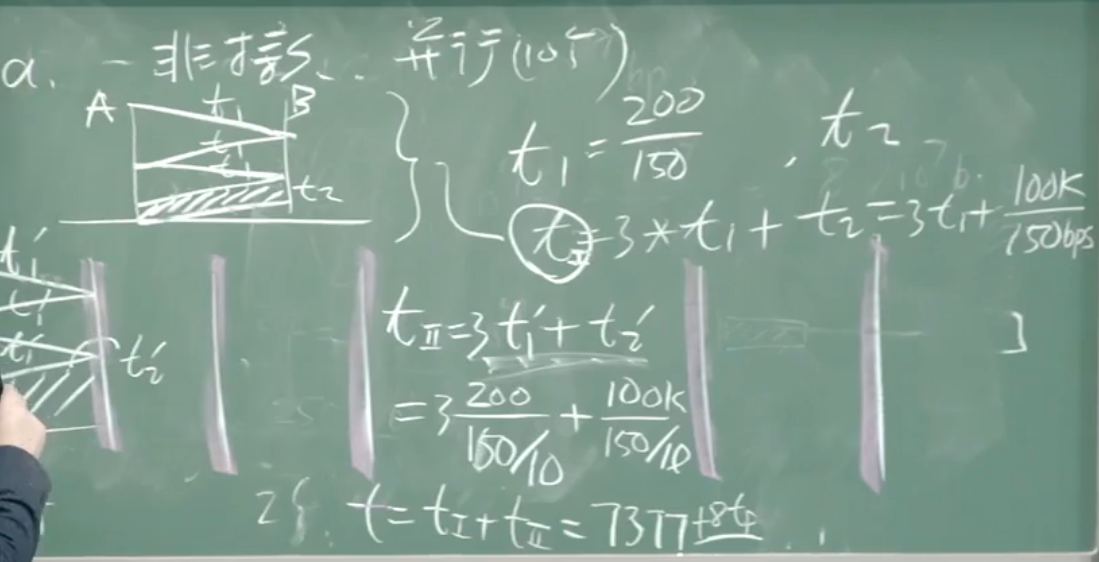 a. 一 非持续... 并行(10个)
A t₁ B
t₁
t₁
t₂
t₁ = 200/150 , t₂
t_I = 3*t₁ + t₂ = 3t₁ + 100K/150bps
t₁'
t₁'
t₁'
t₂'
t_II = 3t₁' + t₂'
= 3 200/(150/10) + 100K/(150/10)
t = t_I + t_II = 7377 + 8t_P